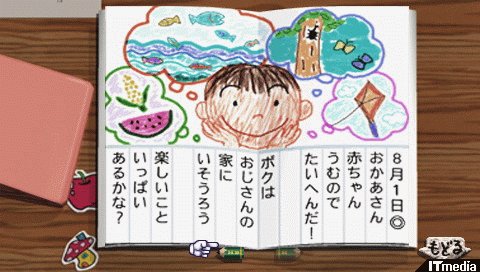 8月1日◎
おかあさん
赤ちゃん
うむので
たいへんだ!
ボクは
おじさんの
家に
いそうろう
楽しいこと
いっぱい
あるかな?
もどる
ITmedia